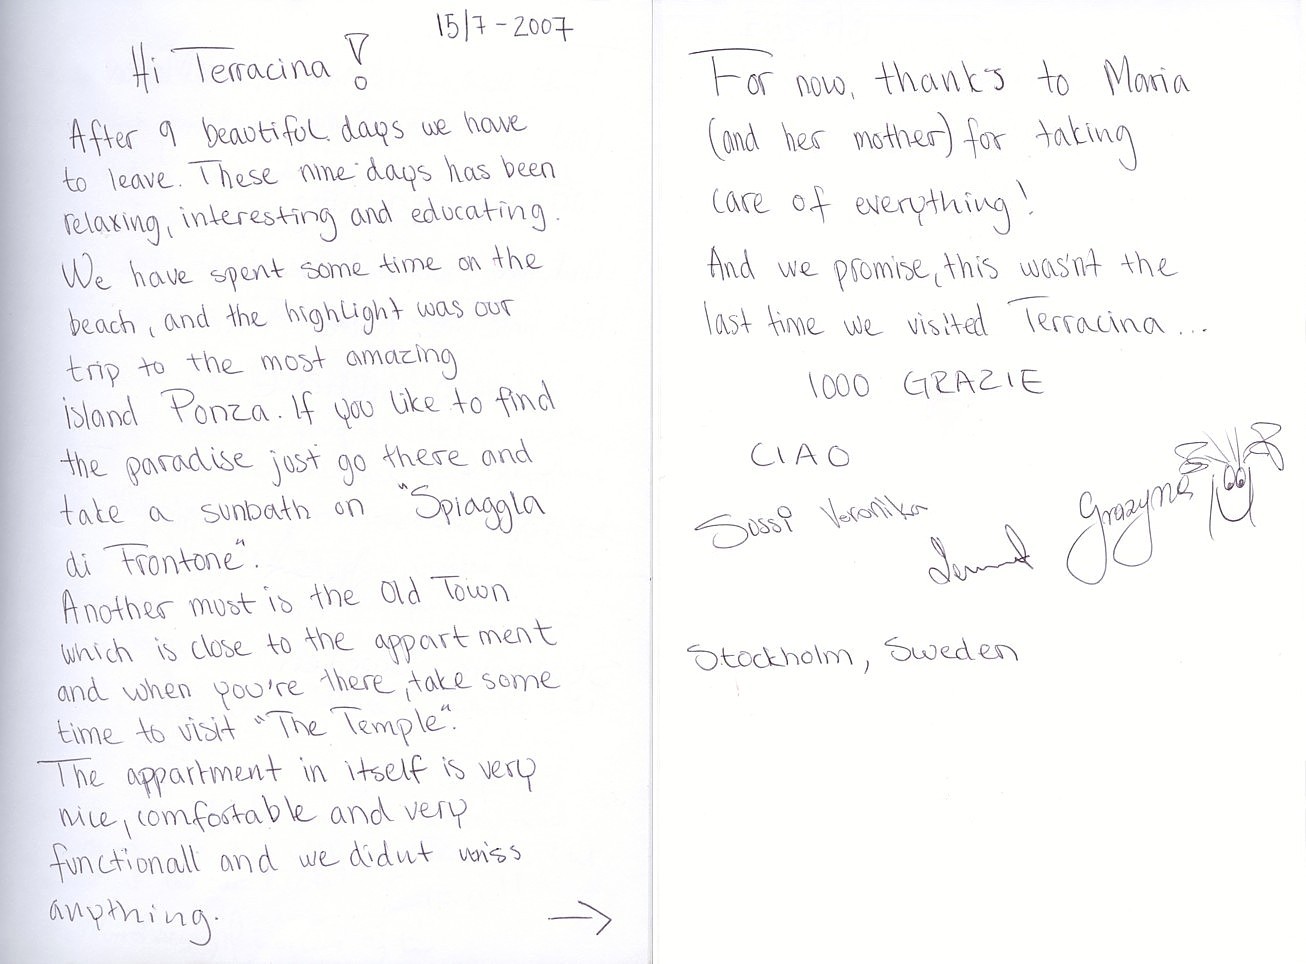 15/7-2007
Hi Terracina!
After 9 beautiful days we have
to leave. These nine days has been
relaxing, interesting and educating.
We have spent some time on the
beach, and the highlight was our
trip to the most amazing
island Ponza. If you like to find
the paradise just go there and
take a sunbath on "Spiaggia
di Frontone".
Another must is the Old Town
which is close to the appartment
and when you're there, take some
time to visit "The Temple".
The appartment in itself is very
nice, comfortable and very
functionall and we didnt miss
anything.
→
For now, thanks to Maria
(and her mother) for taking
care of everything!
And we promise, this wasn't the
last time we visited Terracina...
1000 GRAZIE
CIAO
Sussi Veronika
Grazyna
Stockholm, Sweden